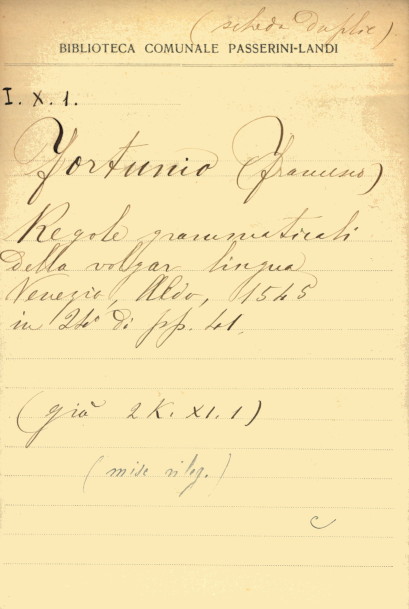 (scheda duplic)
BIBLIOTECA COMUNALE PASSERINI-LANDI
I. X. 1.
Fortunio (Francesco)
Regole grammaticali
della volgar lingua
Venezia, Aldo, 1545
in 24° di pp. 41.
(già 2 K. XI. 1)
(misc rileg.)
C